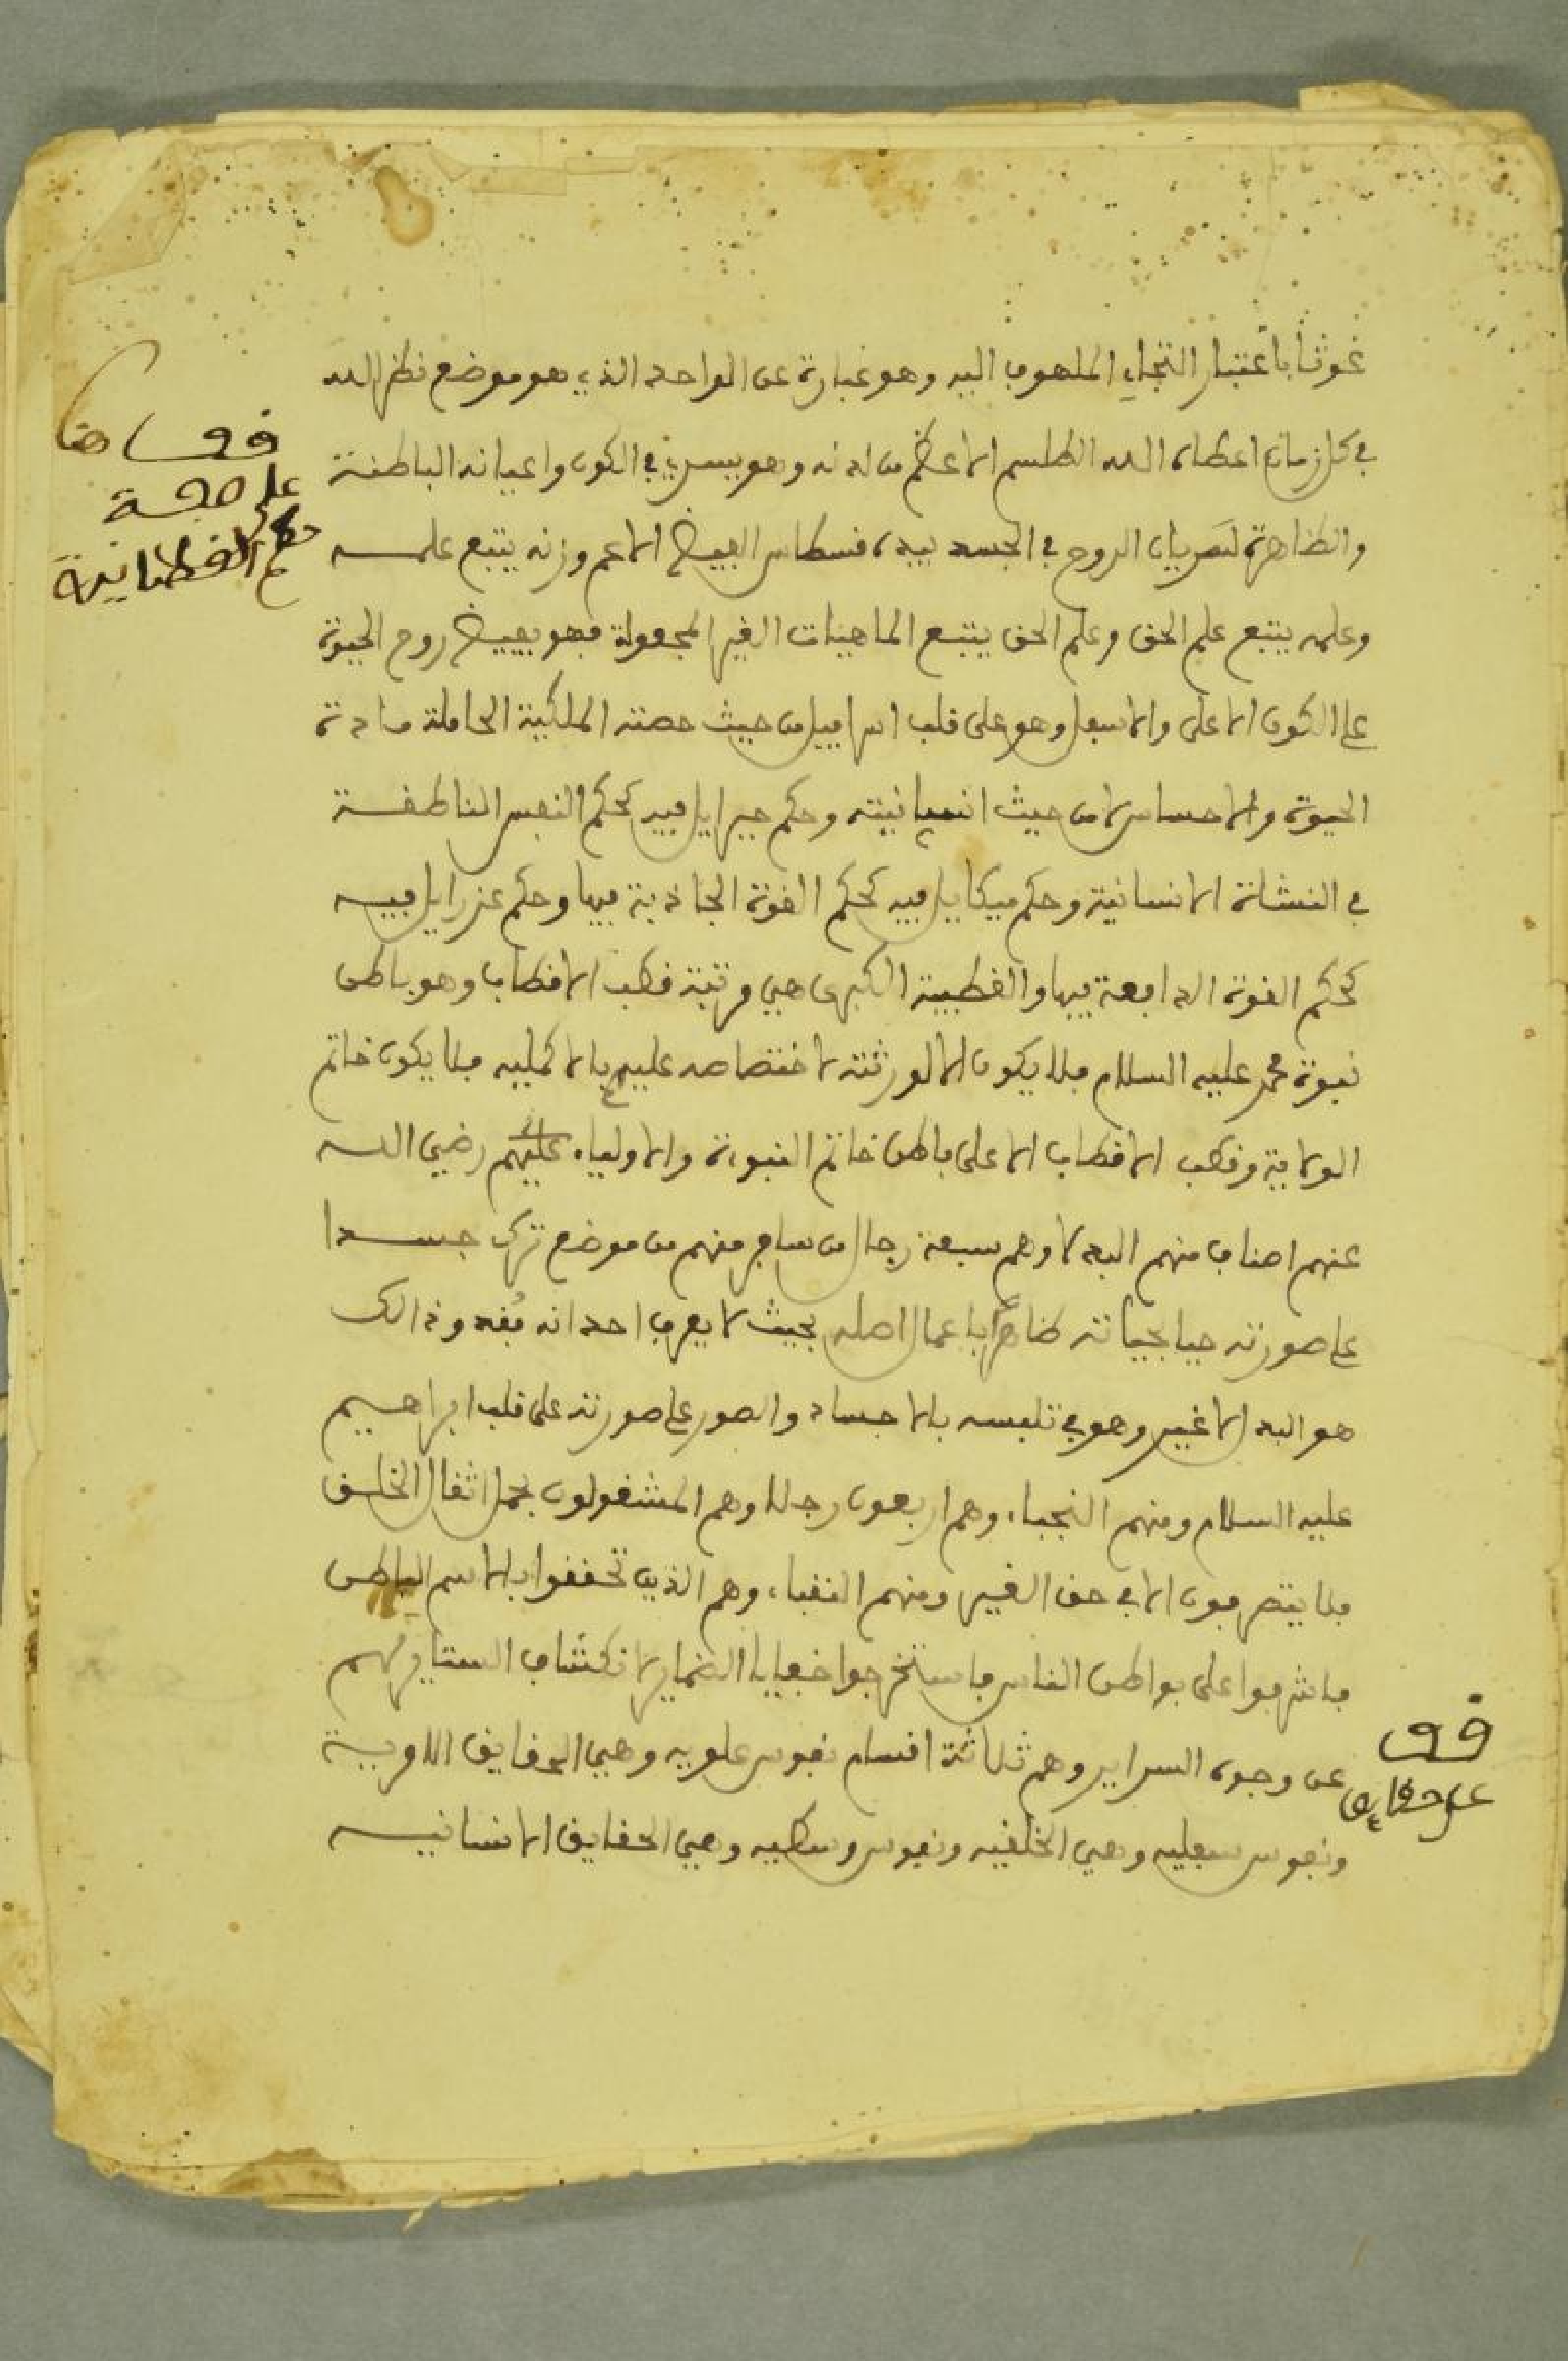 غوثا باعتبار التجاء الملهوف اليه وهو عبارة عن الواحد الذي هو موضع نظر الله
في كل زمان اعطاه الله الطلسم الاعظم من لدنه وهو يسري في الكون واعيانه الباطنة
والظاهرة لسريان الروح في الجسد بيده فسطاس الفيض الاعم وزنه يتبع علمه
وعلمه يتبع علم الحق وعلم الحق يتبع الماهيات الغير المجعولة فهو يفيض روح الحيوة
على الكون الاعلى والاسفل وهو على قلب اسرافيل من حيث حصته الملكية الحاملة مادة
الحيوة والاحساس لا من حيث انسانيته وحكم جبرايل فيه كحكم النفس الناطقة
في النشاة الانسانية وحكم ميكاييل فيه كحكم القوة الجاذبة فيها وحكم عزرايل فيه
كحكم القوة الدافعة فيها والقطبية الكبرى هي مرتبة قطب الاقطاب وهو باطن
نبوة محمد عليه السلام فلا يكون الا لورثته لاختصاصه عليهم بالاكمليه فلا يكون خاتم
الولاية وقطب الاقطاب الا على باطن خاتم النبوءة والاولياء رضي الله
عنهم اصناف منهم البدلا وهم سبعة رجال من سافر منهم من موضع ترك جسدا
على صورته حيا بحياته ظاهرا باعمال اصله بحيث لا يعرف احد انه فقد وذالك
هو البدل لا غير وهو في تلبسه بالاجساد والصور على صورته على قلب ابراهيم
عليه السلام ومنهم النجباء وهم اربعون رجلا وهم المشغولون بحمل اثقال الخلق
فلا يتصرفون الا في حق الغير ومنهم النقباء وهم الذين تحققوا بالاسم الباطن
فاشرفوا على بواطن الناس فاستخرجوا خفايا الضماير لانكشاف الستاير لهم
عن وجوه السراير وهم ثلاثة اقسام نفوس علويه وهي الحقايق الامرية
ونفوس سفليه وهي الخلقيه ونفوس وسطيه وهي الحقايق الانسانيه
قف هنا
على صفة
قف
على حقايق